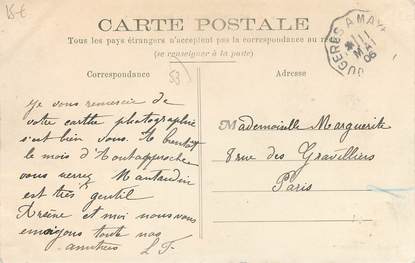 15€
CARTE POSTALE
Tous les pays étrangers n'acceptent pas la correspondance au
(se renseigner à la poste)
GÈRES A MAY
MAI
06
Correspondance
53
Adresse
Je vous remercie de
votre carthe photographie
s'est bien vous. A bientot
le mois d'Aout approche
vous verrez Mantaudin
est très gentil
et moi nous vous
envoyons toute nos
amitiers L F.
Mademoiselle Marguerite
8 rue des Gravilliers
Paris